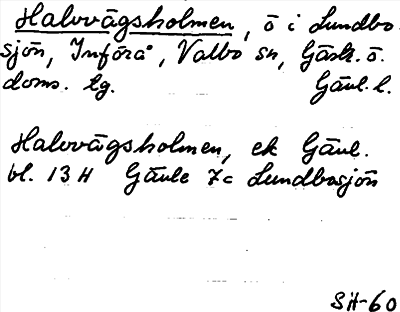 Halvvägsholmen, ö i Lundbo-
sjön, Införå, Valbo sn, Gästr. ö.
doms. lg. Gävl. l.
Halvvägsholmen, ek Gävl.
bl. 13 H Gävle 7c Lundbosjön
SH-60